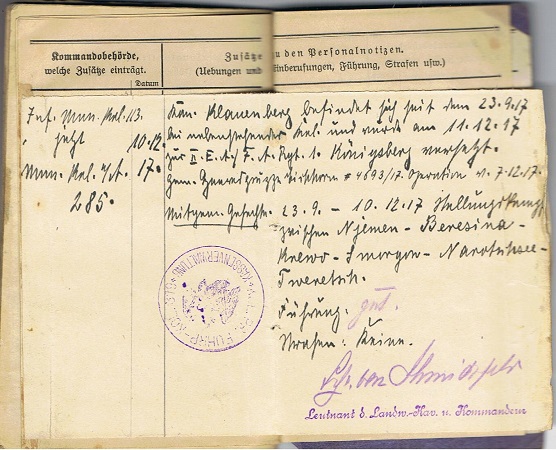 Kommandobehörde,
welche Zusätze einträgt.
Datum
Zusätze zu den Personalnotizen.
(Uebungen und Einberufungen, Führung, Strafen usw.)
Inf. Mun. Kol. 113.
jetzt 10.12.
Mun. Kol. 17.
285.
Kan. Klauenberg befindet sich seit dem 23.9.17
bei nebenstehender Kol. und wurde am 11.12.17
zur II. E. F. A. Rgt. 1. Königsberg versetzt.
gem. 4893/17. Operation v. 7.12.17.
Mitgem. Gefechte. 23.9. – 10.12.17 Stellungskampf
zwischen Njemen – Beresina –
Krewo – Smorgon – Narotschsee –
Tweretsch.
Führung: gut.
Strafen: Keine.
Leutnant d. Landw.-Kav. u. Kommandeur